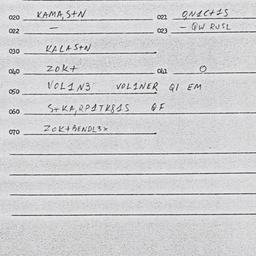 020 KAMA,S+N 021 QN1C+1S
022 — 023 - QW RUSL
030 KALAS+N
040 ZOK+ 042 O
050 VOL1N3 VOL1NER Q1 EM
060 S+KA,RP1TK81S QF
070 ZOK+BENDL3X